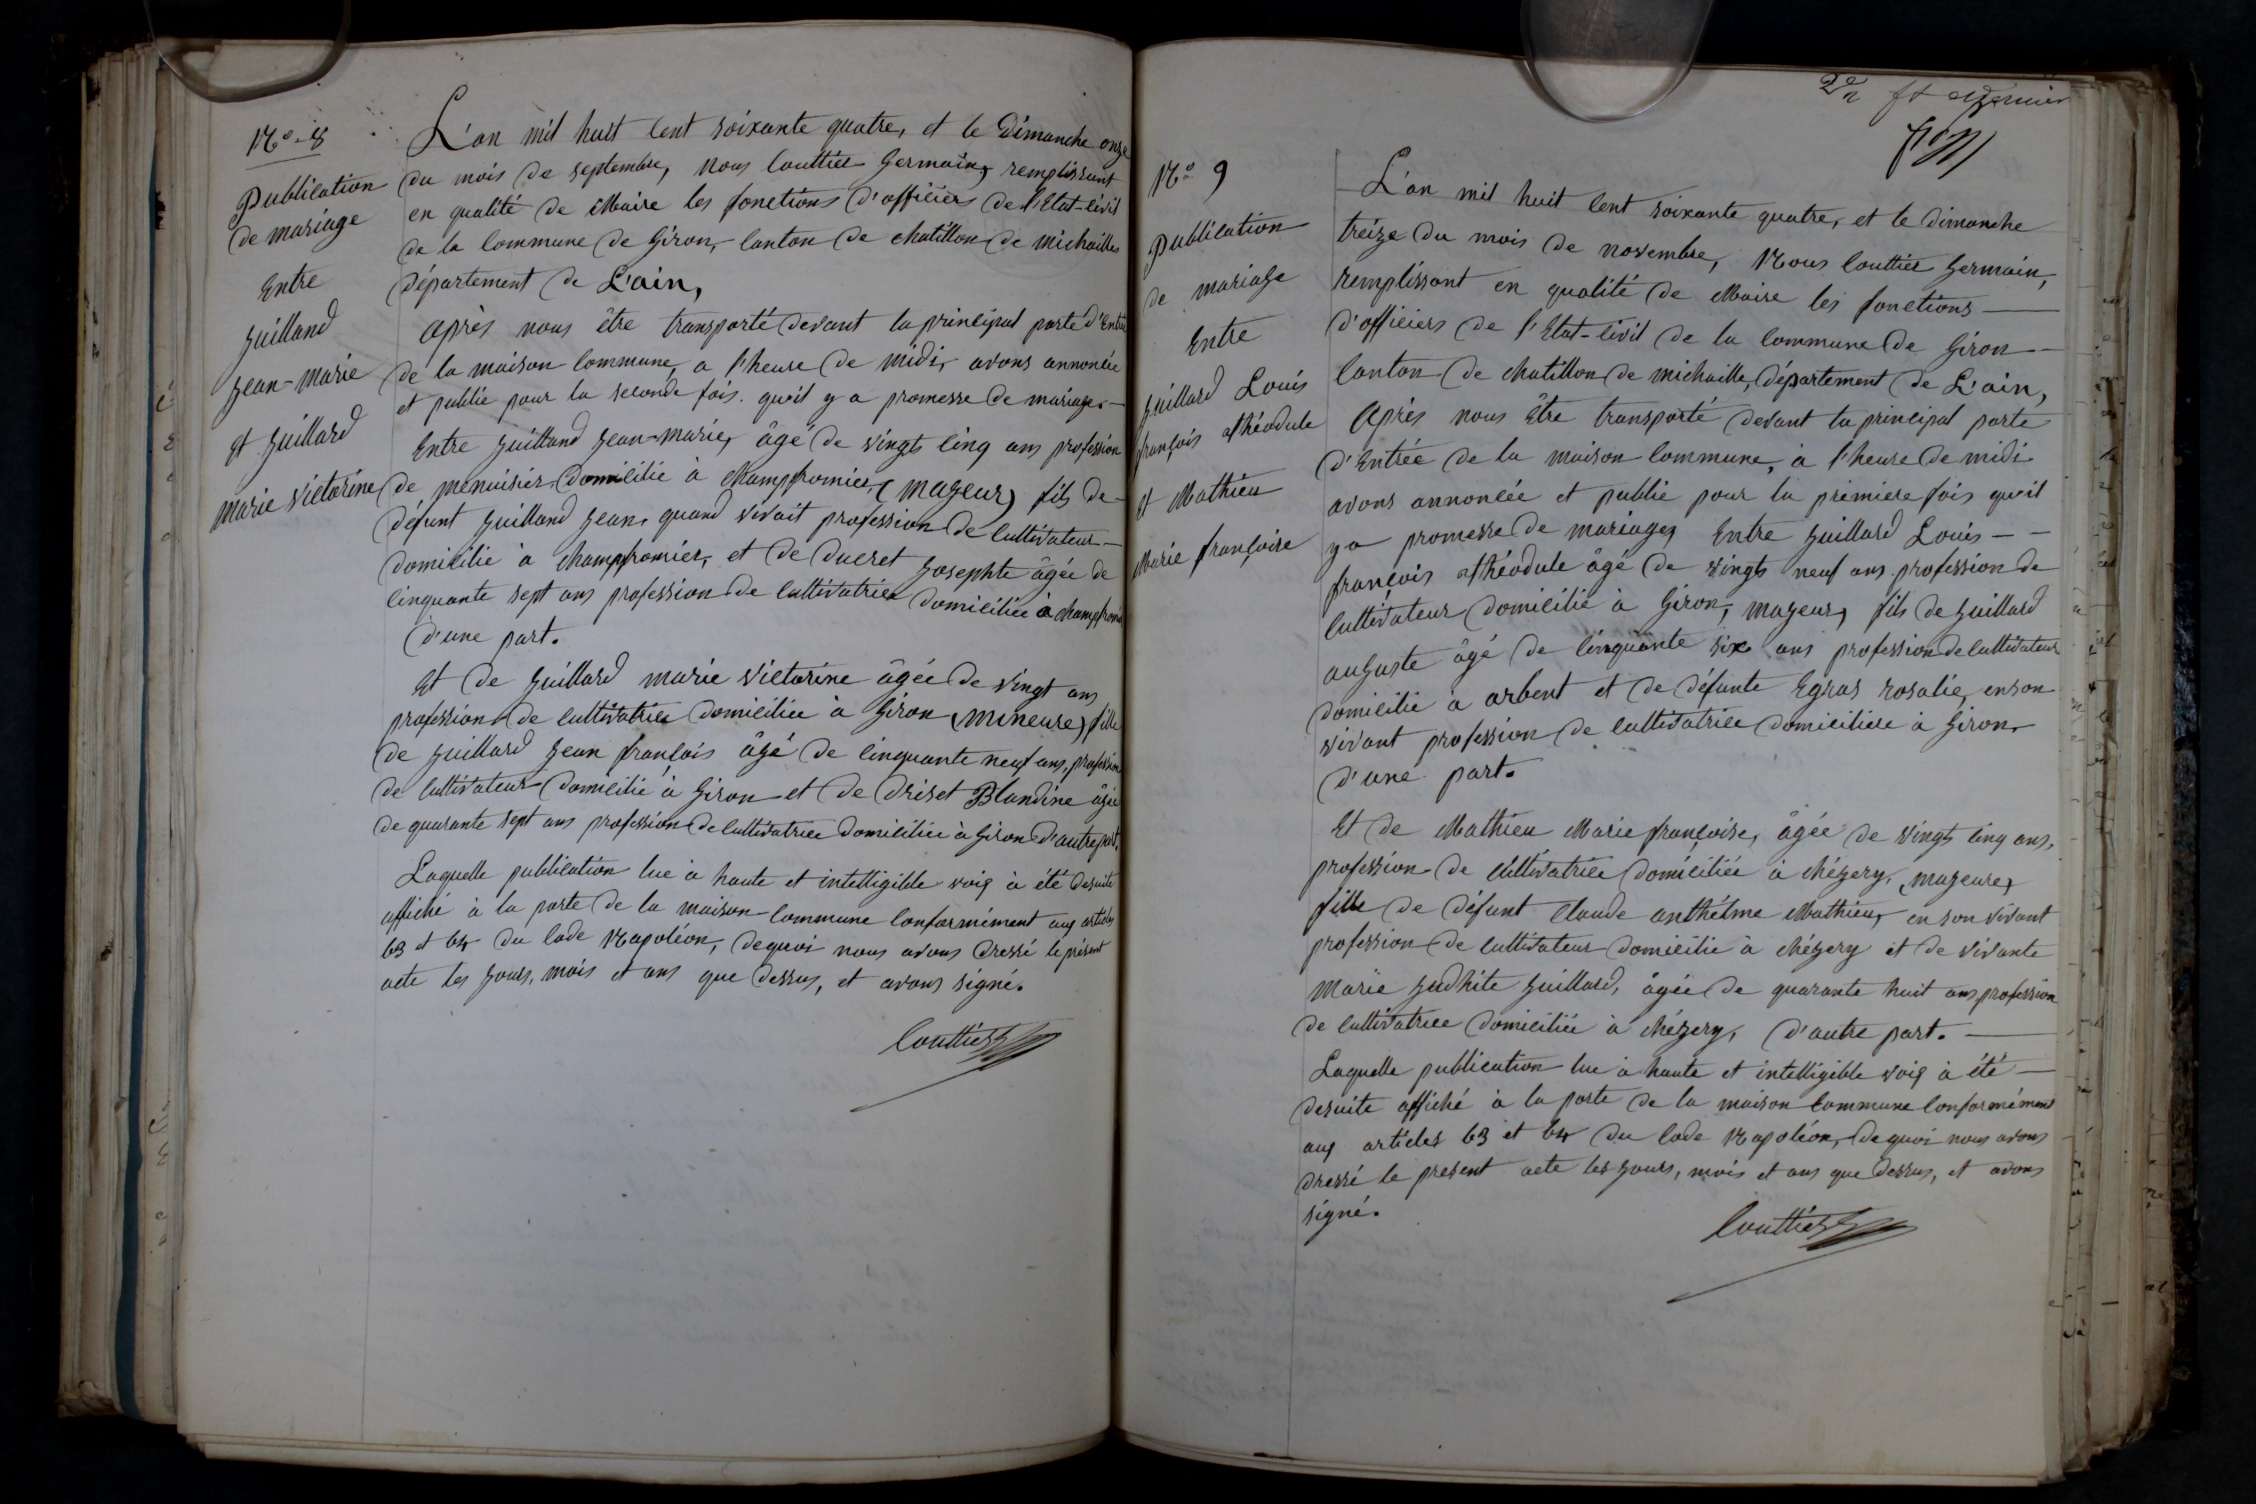 N° 8
Publication
de mariage
Entre
Guilland
Jean-marie
et Guillard
marie victorine
L'an mil huit cent soixante quatre, et le Dimanche onze
du mois de septembre, nous Couttier Germain, remplissant
en qualité de Maire les fonctions d'officiers de l'Etat-civil
de la commune de Giron, canton de chatillon de michailles
département de L'ain,
après nous être transporté devant la principal porte d'Entrée
de la maison commune, a l'heure de midi, avons annoncée
et publié pour la seconde fois qu'il y a promesse de mariage
Entre Guilland Jean-marie, âgé de vingts cinq ans profession
de menuisier domicilié à Champfromier, (mageur) fils de
défunt Guilland Jean, quand vivait profession de cultivateur
domicilié à Champfromier, et de Ducret Josephte âgée de
cinquante sept ans profession de cultivatrice domiciliée à champfromier
d'une part.
Et de Guillard marie victorine âgée de vingt ans
profession de cultivatrice domiciliée à Giron (mineure) fille
de Guillard Jean françois âgé de cinquante neuf ans, profession
de cultivateur domicilié à Giron et de Driset Blandine âgée
de quarante sept ans profession de cultivatrice domiciliée à Giron d'autre part,
Laquelle publication lue à haute et intelligible voix à été desuite
affiché à la porte de la maison commune conformément aux articles
63 et 64 du code Napoléon, dequoi nous avons dressé le présent
acte les jours, mois et ans que dessus, et avons signé.
Couttier
2e et dernier
N° 9
Publication
de mariage
Entre
Guillard Louis
françois athéodule
et Mathieu
Marie françoise
L'an mil huit cent soixante quatre, et le dimanche
treize du mois de novembre, Nous Couttier Germain,
remplissant en qualité de Maire les fonctions
d'officiers de l'Etat-civil de la commune de Giron
canton de chatillon de michaille, département de L'ain,
Après nous être transporté devant la principal porte
d'Entrée de la maison commune, à l'heure de midi
avons annoncée et publié pour la premiere fois qu'il
y a promesse de mariage, Entre Guillard Louis
françois athéodule âgé de vingts neuf ans profession de
cultivateur domicilié à Giron, mageur, fils de Guillard
auguste âgé de cinquante six ans profession de cultivateur
domicilié à arbent et de défunte Egras rosalie, en son
vivant profession de cultivatrice domiciliére à Giron,
d'une part.
Et de Mathieu Marie françoise, âgée de vingts cinq ans,
profession de cultivatrice domiciliée à chézery, (mageure)
fille de défunt Claude anthélme Mathieu, en son vivant
profession de cultivateur domicilié à chézery et de vivante
Marie Judhite Guillard, âgée de quarante huit ans, profession
de cultivatrice domiciliée à chézery, d'autre part.
Laquelle publication lue à haute et intelligible voix à été
desuite affiché à la porte de la maison commune conformément
aux articles 63 et 64 du code Napoléon, dequoi nous avons
dressé le present acte les jours, mois et ans que dessus, et avons
signé.
Couttier